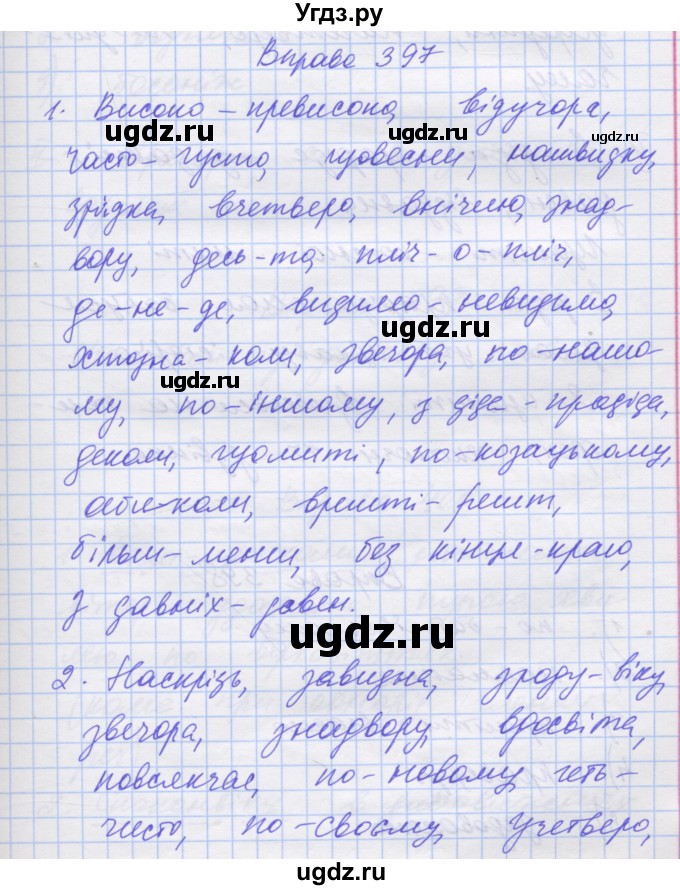 Угдз.ру
Вправа 397
1. Високо-превисоко, відучора,
часто-густо, навесни, нашвидку,
зрідка, вчетверо, внічию, знад-
вору, десь-то, пліч-о-пліч,
де-не-де, видимо-невидимо,
хтозна-коли, звечора, по-нашо-
му, по-іншому, з діда-прадіда,
деколи, по-козацькому,
аби-коли, врешті-решт,
більш-менш, без кінця-краю,
з давніх-давен.
2. Наскрізь, завидна, зроду-віку,
звечора, знадвору, вдосвіта,
повсякчас, по-новому, геть-
чисто, по-своєму, учетверо,
ugdz.ru
ugdz.ru
ugdz.ru
ugdz.ru
ugdz.ru
ugdz.ru
ugdz.ru
ugdz.ru
ugdz.ru